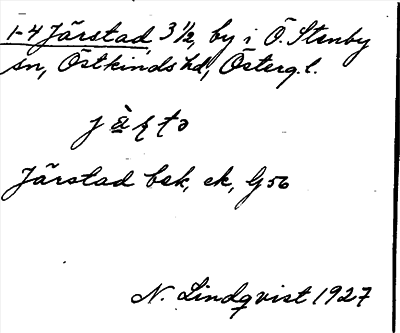 1-4 Järstad, 3 1/2, by i Ö. Stenby
sn, Östkinds hd, Österg. l.
Järstad bek, ek, G56
N. Lindqvist 1927